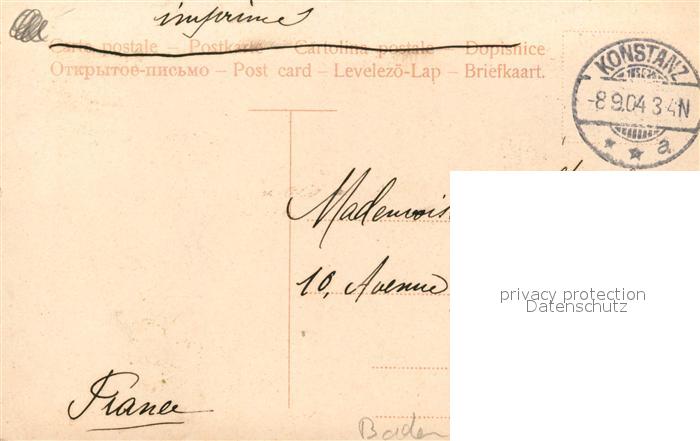 imprimés
Carte postale – Postkarte – Cartolina postale – Dopisnice
Открытое-письмо – Post card – Levelező-Lap – Briefkaart.
KONSTANZ
-8 9.04 3-4N
* * a
Mademois
10, Avenue
privacy protection
Datenschutz
France
Baden